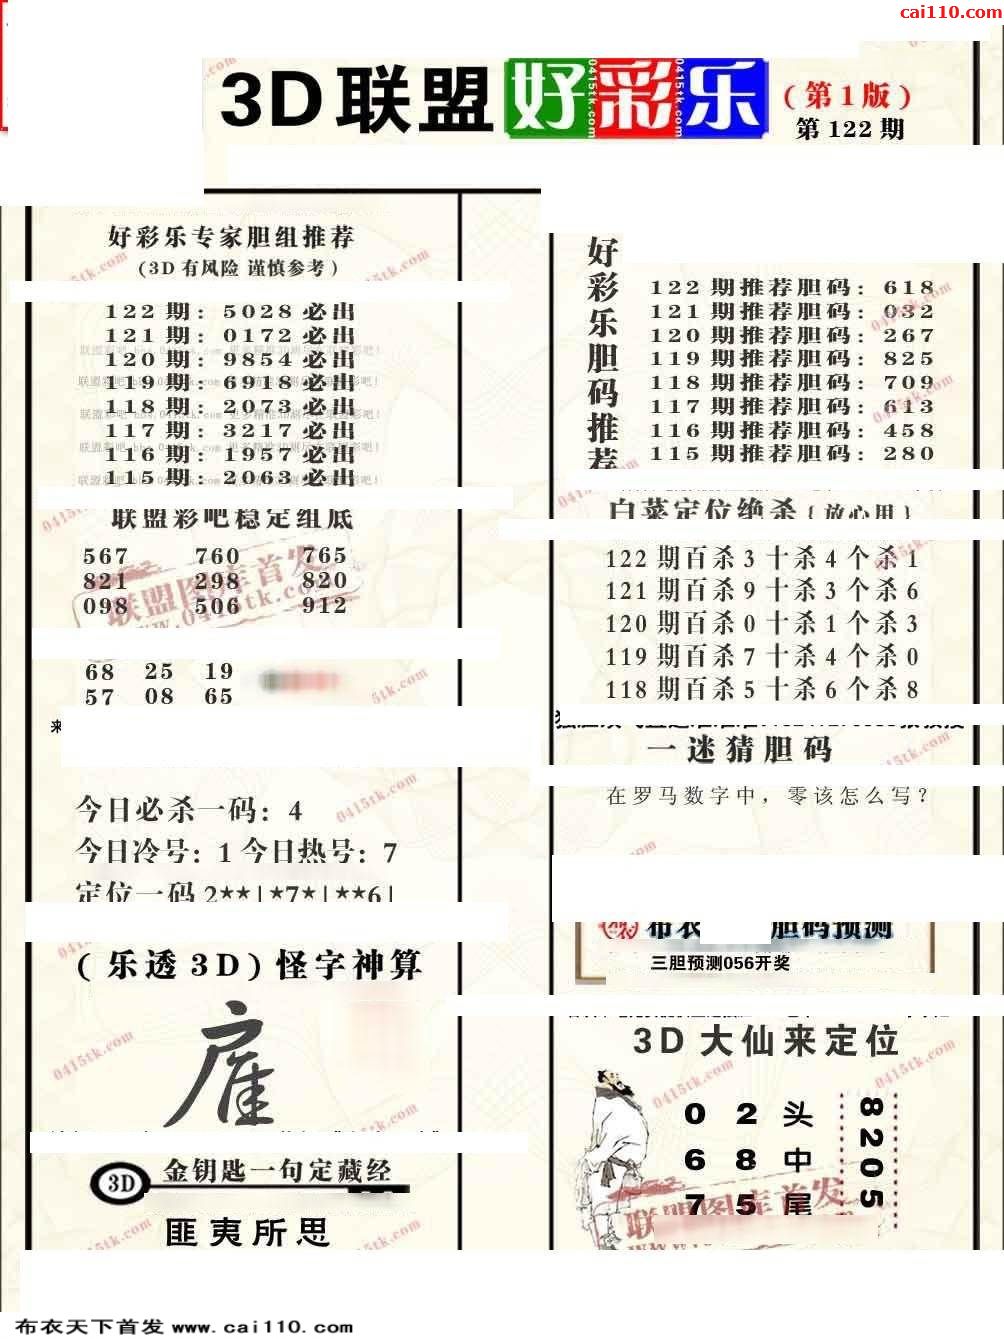 cai110.com
3D联盟好彩乐
(第1版)
第122期
好彩乐专家胆组推荐
(3D有风险 谨慎参考)
122期: 5028必出
121期: 0172必出
120期: 9854必出
119期: 6918必出
118期: 2073必出
117期: 3217必出
116期: 1957必出
115期: 2063必出
联盟彩吧稳定组底
567 760 765
821 298 820
098 506 912
68 25 19
57 08 65
来
今日必杀一码: 4
今日冷号: 1 今日热号: 7
定位一码 2**|*7*|**6|
(乐透3D)怪字神算
3D
金钥匙一句定藏经
匪夷所思
好彩乐胆码推荐
122期推荐胆码: 618
121期推荐胆码: 032
120期推荐胆码: 267
119期推荐胆码: 825
118期推荐胆码: 709
117期推荐胆码: 613
116期推荐胆码: 458
115期推荐胆码: 280
白菜定位绝杀{放心用}
122期百杀3十杀4个杀1
121期百杀9十杀3个杀6
120期百杀0十杀1个杀3
119期百杀7十杀4个杀0
118期百杀5十杀6个杀8
一迷猜胆码
在罗马数字中，零该怎么写？
布衣 胆码预测
三胆预测056开奖
3D大仙来定位
0 2 头
6 8 中
7 5 尾
8205
联盟图库首发
0415tk.com
布衣天下首发 www.cai110.com